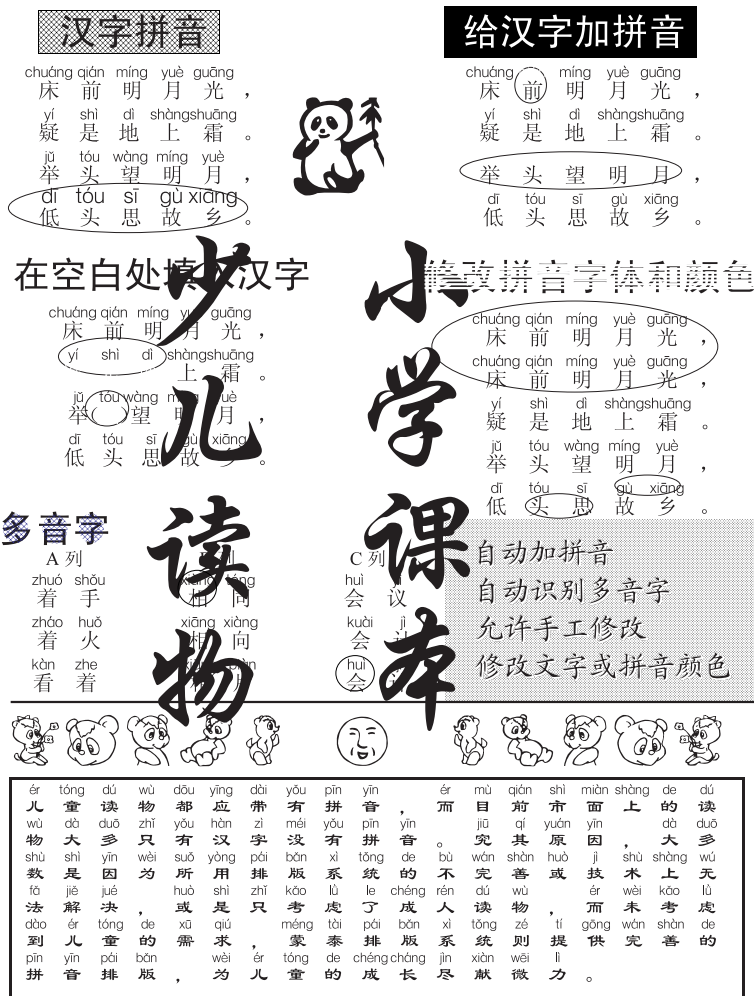 汉字拼音
chuáng qián míng yuè guāng
床前明月光，
yí shì dì shàngshuāng
疑是地上霜。
jǔ tóu wàng míng yuè
举头望明月，
dī tóu sī gù xiāng
低头思故乡。
给汉字加拼音
chuáng míng yuè guāng
床前明月光，
yí shì dì shàngshuāng
疑是地上霜。
举头望明月，
dī tóu sī gù xiāng
低头思故乡。
少儿读物
小学课本
在空白处填入汉字
chuáng qián míng yuè guāng
床前明月光，
yí shì dì shàngshuāng
上霜。
jǔ tóu wàng míng yuè
举( )望明月，
dī tóu sī gù xiāng
低头思故乡。
修改拼音字体和颜色
chuáng qián míng yuè guāng
床前明月光，
chuáng qián míng yuè guāng
床前明月光，
yí shì dì shàngshuāng
疑是地上霜。
jǔ tóu wàng míng yuè
举头望明月，
dī tóu sī gù xiāng
低头思故乡。
多音字
A 列
zhuó shǒu
着手
zháo huǒ
着火
kàn zhe
看着
列
相向
xiāng xiàng
相向
C 列
huì
会议
kuài jì
会计
huì
会
自动加拼音
自动识别多音字
允许手工修改
修改文字或拼音颜色
ér tóng dú wù dōu yīng dài yǒu pīn yīn ér mù qián shì miàn shàng de dú
儿童读物都应带有拼音，而目前市面上的读
wù dà duō zhǐ yǒu hàn zì méi yǒu pīn yīn jiū qí yuán yīn dà duō
物大多只有汉字没有拼音。究其原因，大多
shù shì yīn wèi suǒ yòng pái bǎn xì tǒng de bù wán shàn huò jì shù shàng wú
数是因为所用排版系统的不完善或技术上无
fǎ jiě jué huò shì zhǐ kǎo lǜ le chéng rén dú wù ér wèi kǎo lǜ
法解决，或是只考虑了成人读物，而未考虑
dào ér tóng de xū qiú méng tài pái bǎn xì tǒng zé tí gōng wán shàn de
到儿童的需求，蒙泰排版系统则提供完善的
pīn yīn pái bǎn wèi ér tóng de chéng cháng jìn xiàn wēi lì
拼音排版，为儿童的成长尽献微力。